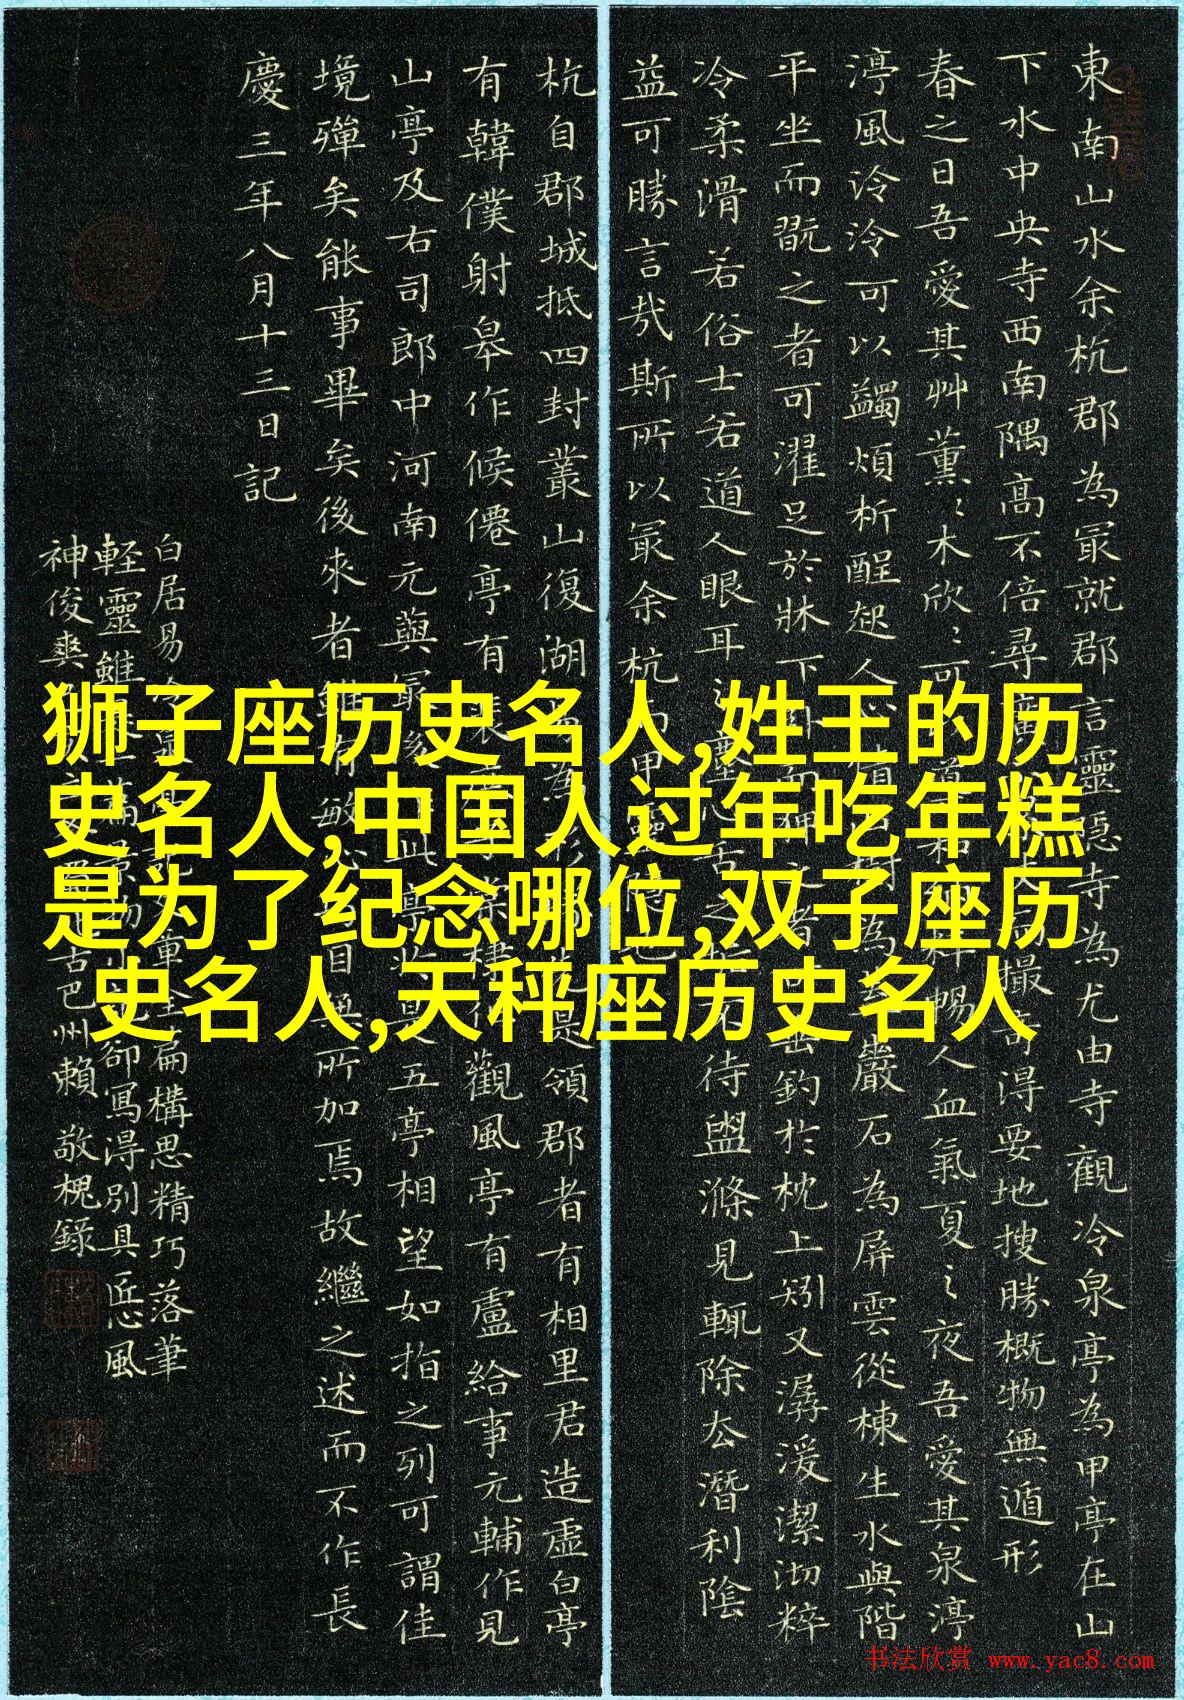 狮子座历史名人,姓王的历
史名人,中国人过年吃年糕
是为了纪念哪位,双子座历
史名人,天秤座历史名人
東南山水余杭郡為冣就郡言靈隱寺為尤由寺觀冷泉亭為甲亭在山
下水中央寺西南隅高不倍尋廣撮奇得要地搜勝概物無遁形
春之日吾愛其艸薰〻木欣〻可導和納粹暢人血氣夏之夜吾愛其泉渟
渟風泠泠可以蠲煩析酲起人心情為巖石為屏雲從棟生水與階
平坐而翫之者可濯足於牀下卧而狎之者可垂釣於枕上矧又潺湲潔沏粹
冷柔滑若俗士若道人眼耳之塵心舌之垢不待盥滌見輒除去潛利陰
益可勝言哉斯所以冣余杭而甲靈隱也
杭自郡城抵四封叢山復湖易為形勝先是領郡者有相里君造虛白亭
有韓僕射皋作候僊亭有裴庶子棠棣作觀風亭有盧給事元輔作見
山亭及右司郎中河南元藇冣後作此亭於是五亭相望如指之列可謂佳
境殫矣能事畢矣後來者雖有敏心巧目無所加焉故繼之述而不作長
慶三年八月十三日記
白居易全篇構思精巧落筆
軽靈雖萬景物卻寫得別具匠心風
神俊爽古巴州賴敬槐錄
书法欣赏 www.yac8.com